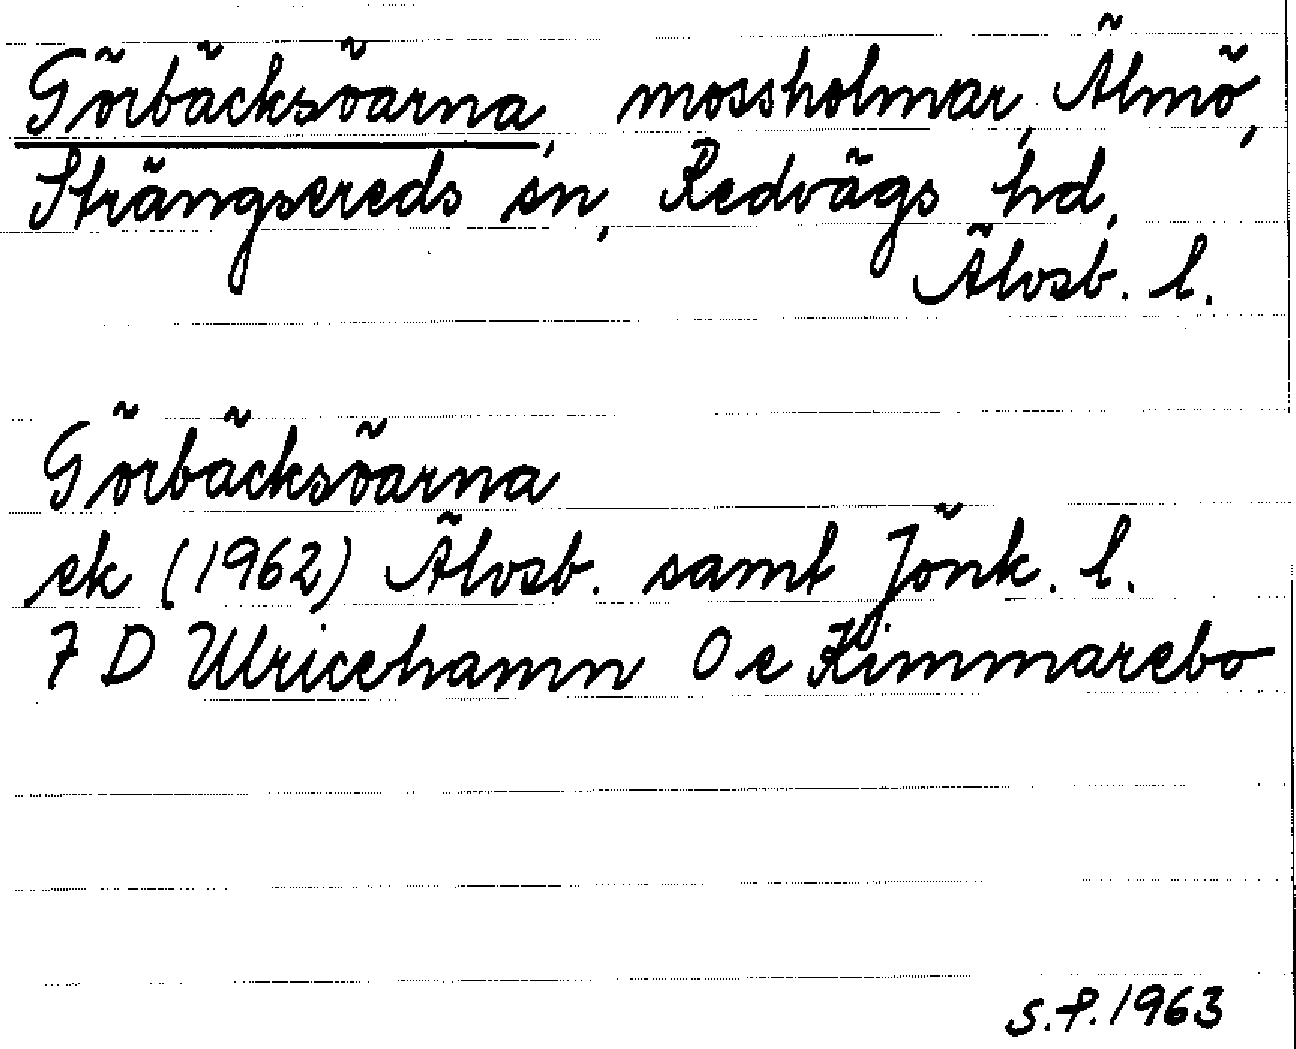 Görbäcksöarna, mossholmar, Älmö,
Strängsereds sn, Redvägs hd,
Älvsb. l.
Görbäcksöarna
ek (1962) Älvsb. samt Jönk. l.
7 D Ulricehamn 0 e Kimmarebo
S.P. 1963